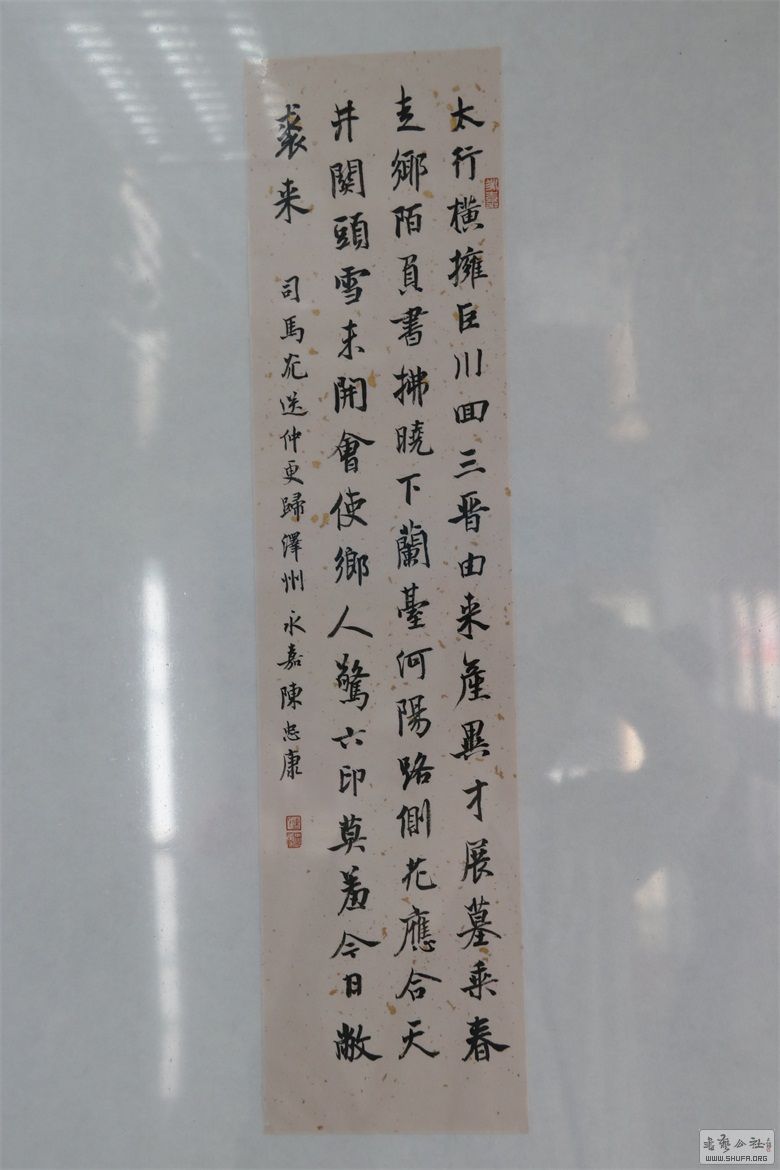 太行橫擁巨川回三晉由来產異才展墓乘春
走鄉陌負書拂曉下蘭臺河陽路側花應合天
井關頭雪未開會使鄉人驚六印莫羞今日敝
裘来
司馬光送仲更歸澤州永嘉陳忠康
書藝公社
WWW.SHUFA.ORG